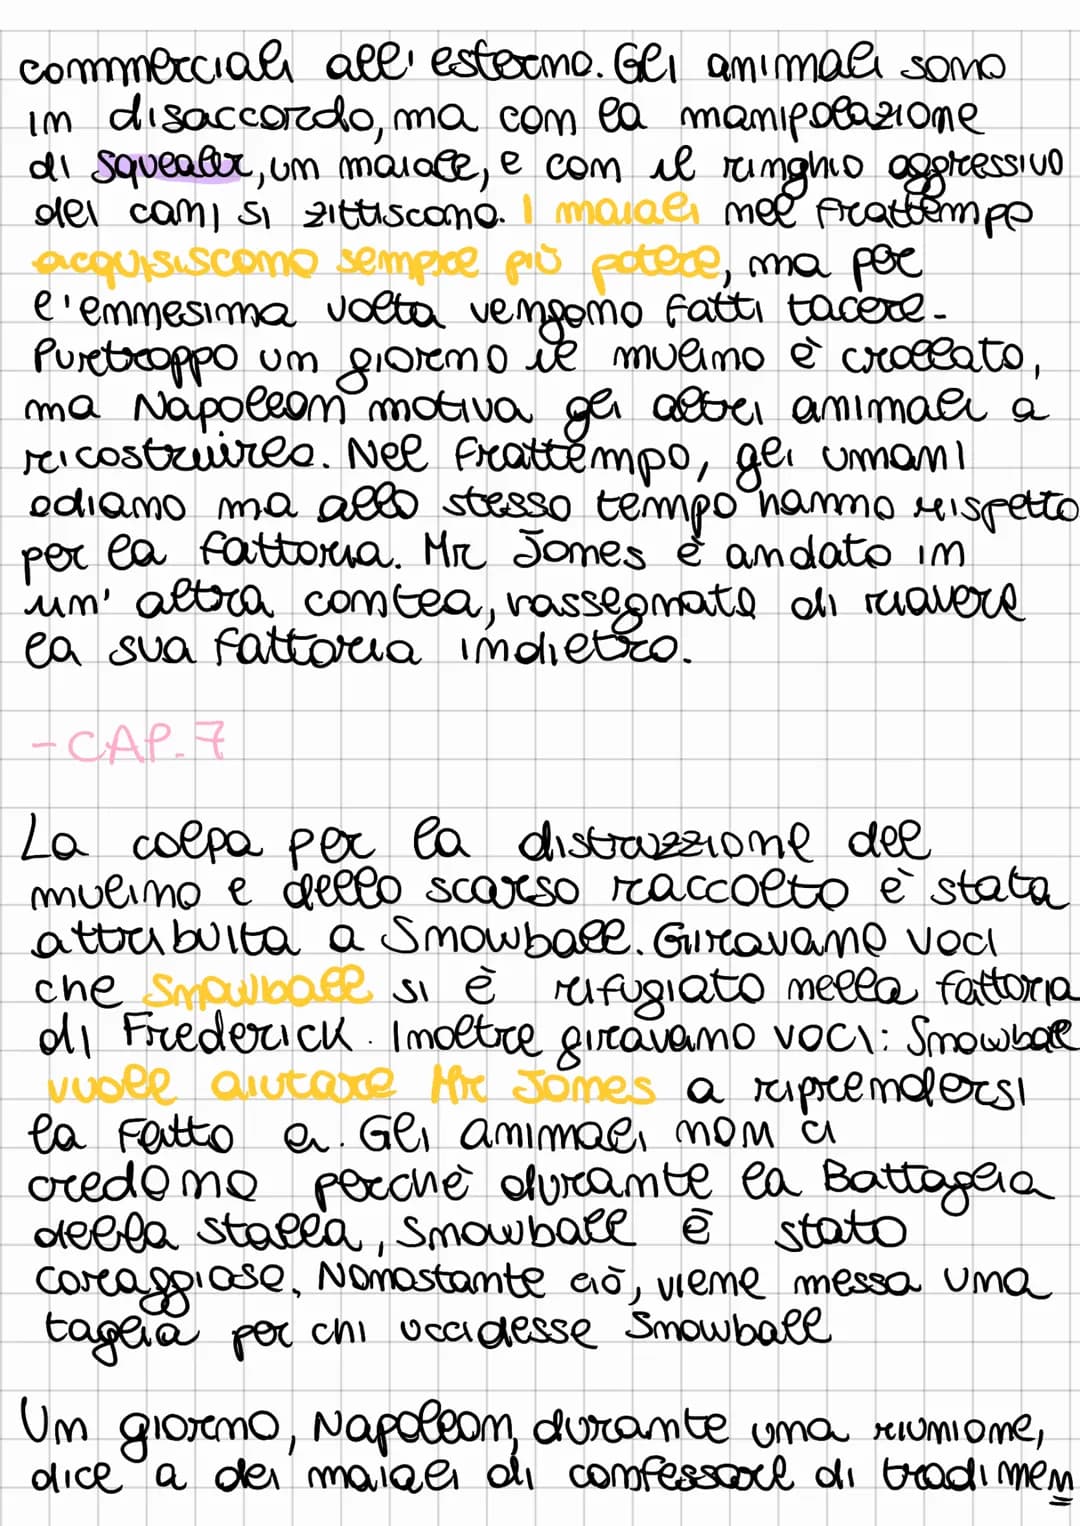 commerciali all'esterno. Gli animali sono
in disaccordo, ma con la manipolazione
di Squealer, un maiale, e con il ringhio aggressivo
dei cani si zittiscono. I maiali nel frattempo
acquisiscono sempre più potere, ma per
l'ennesima volta vengono fatti tacere.
Purtroppo un giorno il mulino è crollato,
ma Napoleon motiva gli altri animali a
ricostruirlo. Nel frattempo, gli umani
odiano ma allo stesso tempo hanno rispetto
per la fattoria. Mr Jones è andato in
un'altra contea, rassegnato di riavere
la sua fattoria indietro.
-CAP.7
La colpa per la distruzzione del
mulino e dello scarso raccolto è stata
attribuita a Snowball. Giravano voci
che Snowball si è rifugiato nella fattoria
di Frederick. Inoltre giravano voci: Snowball
vuole aiutare Mr Jones a riprendersi
la fatto a. Gli animali non ci
credono perchè durante la Battaglia
della stalla, Snowball è stato
coraggioso. Nonostante ciò, viene messa una
taglia per chi uccidesse Snowball
Un giorno, Napoleon, durante una riunione,
dice a dei maiali di confessare di tradimen